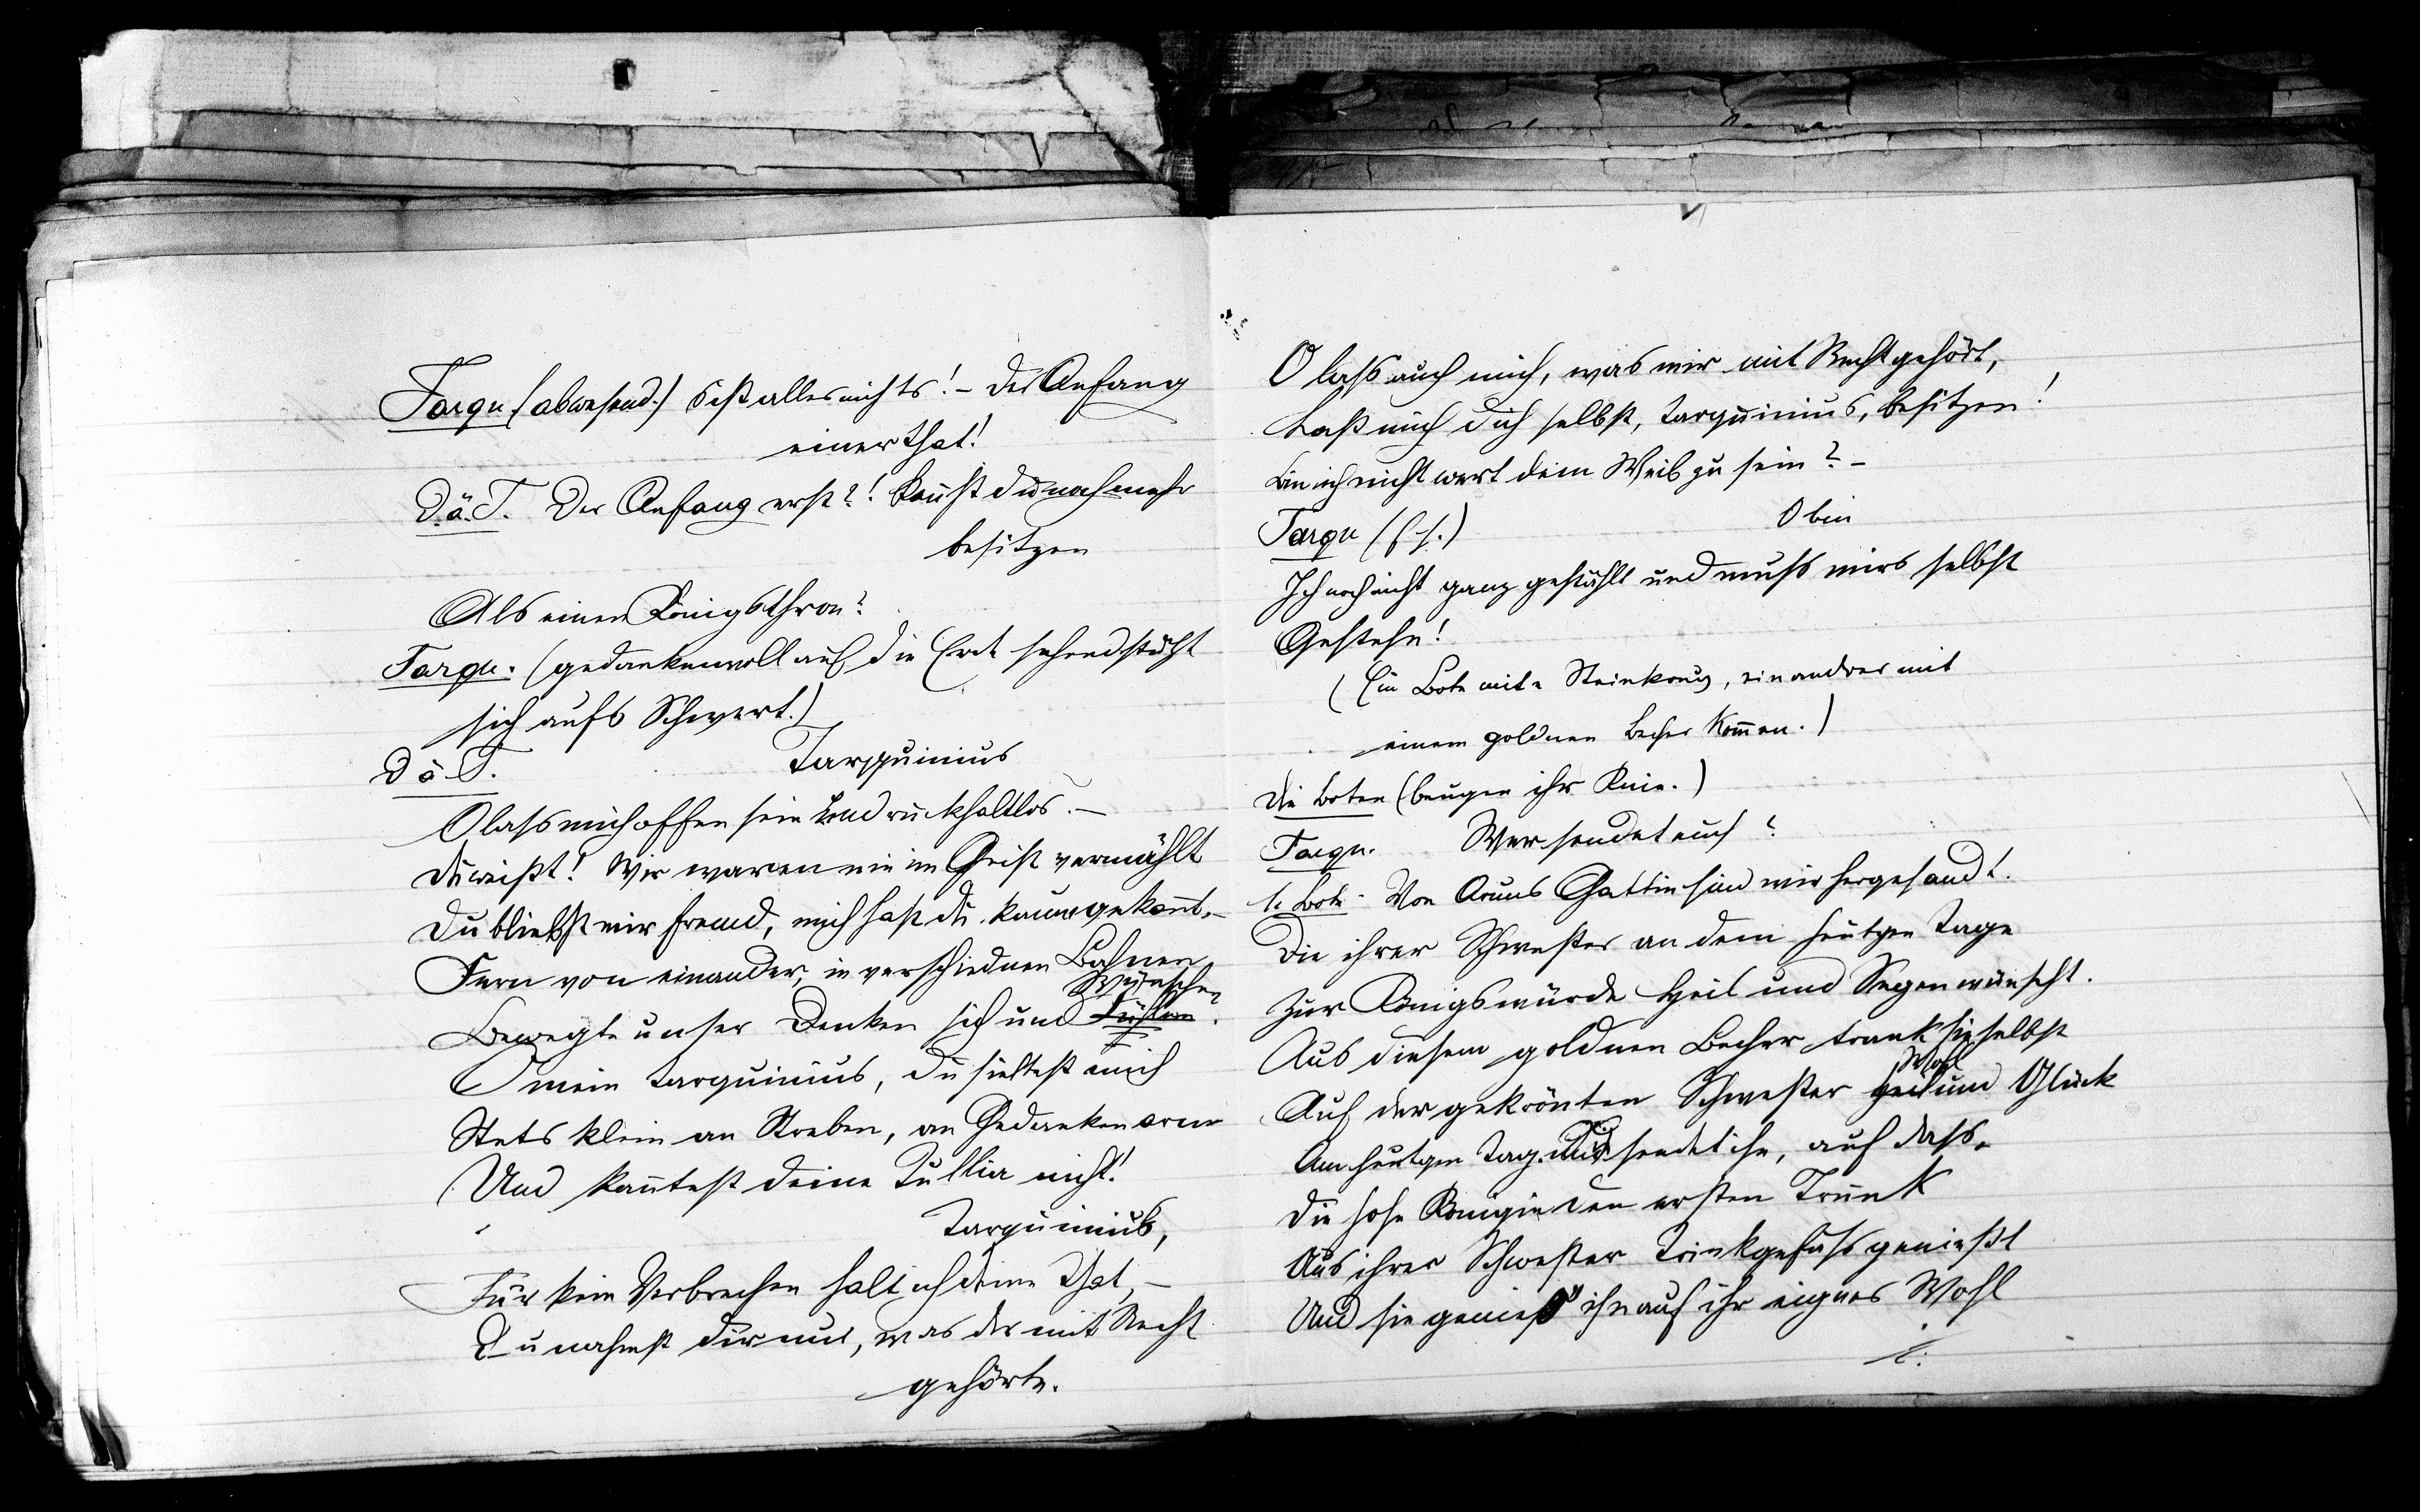 Tarqu (abwesend.) Ists alles nichts! – Der Anfang
einer That!
D. ä. T. Der Anfang erst?! Kannst du noch mehr
besitzen
Als einen Königsthron?
Tarqu. (gedankenvoll auf die Erde sehend stützt
sich aufs Schwert.)
D ä T. Tarquinius
O lass mich offen sein und rückhaltlos. –
Du weißt! Wir waren nie im Geist vermählt
Du bliebst mir fremd, mich hast du kaum gekannt. –
Fern von einander, in verschiednen Bahnen
Wünschen
Bewegte unser Denken sich und Fühlen.
O mein Tarquinius, du hieltest mich
Stets klein an Streben, an Gedanken arm
Und kanntest deine Tullia nicht!
Tarquinius,
Für kein Verbrechen halt ich deine That, –
Du nahmst dir nur, was dir mit Recht
gehörte.
O lass auch mich, was mir mit Recht gehört,
Laß mich dich selbst, Tarquinius, besitzen!
Bin ich nicht wert dein Weib zu sein? –
Tarqu (f. s.) O bin
Ich noch nicht ganz gestählt und muss mirs selbst
Gestehn!
(Ein Bote mit Steinkrug, ein andrer mit
einem goldnen Becher kom̄en.)
Die Boten (beugen ihr Knie.)
Tarqu. Wer sendet euch?
1. Bote. Von Aruns Gattin sind wir hergesandt.
Die ihrer Schwester an dem heutgen Tage
Zur Königswürde Heil und Segen wünscht.
Aus diesem goldnen Becher trank sie selbst
Wohl
Auf der gekrönten Schwester Heil und Glück
Am heutgen Tag. Sie sendet ihn, auf dass
Die hohe Königin den ersten Trunk
Aus ihrer Schwester Trinkgefäss genießt
Und sie genieß' ihn auf ihr eignes Wohl